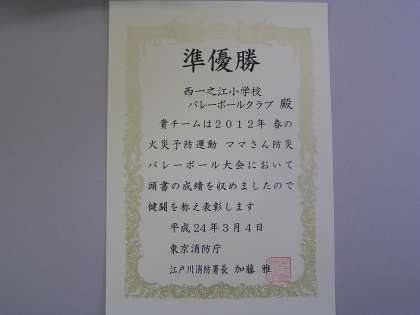 準優勝
西一之江小学校
バレーボールクラブ 殿
貴チームは2012年 春の
火災予防運動 ママさん防災
バレーボール大会において
頭書の成績を収めましたので
健闘を称え表彰します
平成24年3月4日
東京消防庁
江戸川消防署長 加藤 雅